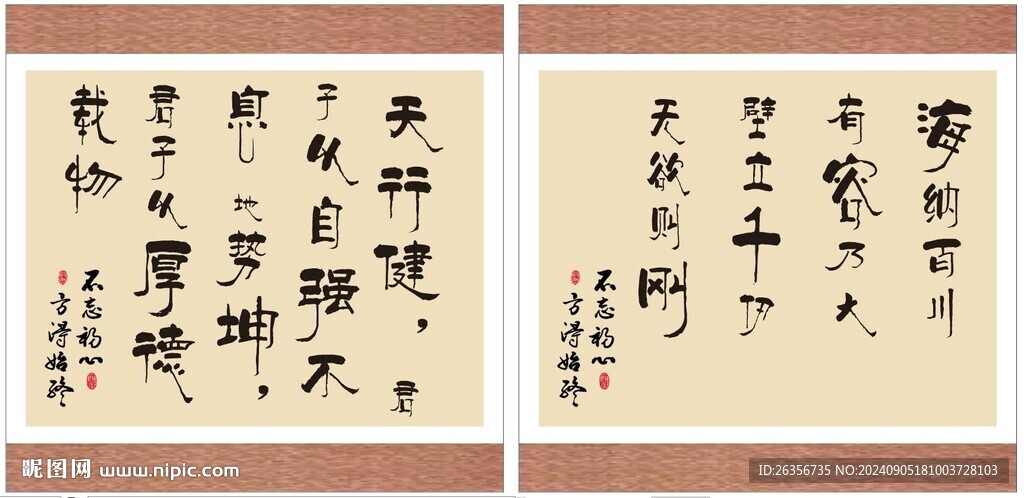 天行健，君
子以自强不
息 地势坤，
君子以厚德
载物
不忘初心
方得始终
海纳百川
有容乃大
壁立千仞
无欲则刚
不忘初心
方得始终
昵图网 www.nipic.com
ID:26356735 NO:20240905181003728103